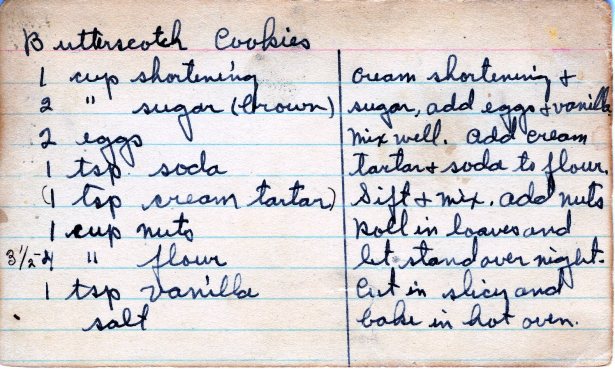 Butterscotch Cookies
1 cup shortening
2 " sugar (brown)
2 eggs
1 tsp soda
(1 tsp cream tartar)
1 cup nuts
3 1/2-4 " flour
1 tsp vanilla
salt
cream shortening &
sugar, add eggs & vanilla
mix well. add cream
tartar & soda to flour.
Sift & mix. add nuts
Roll in loaves and
let stand over night.
Cut in slices and
bake in hot oven.